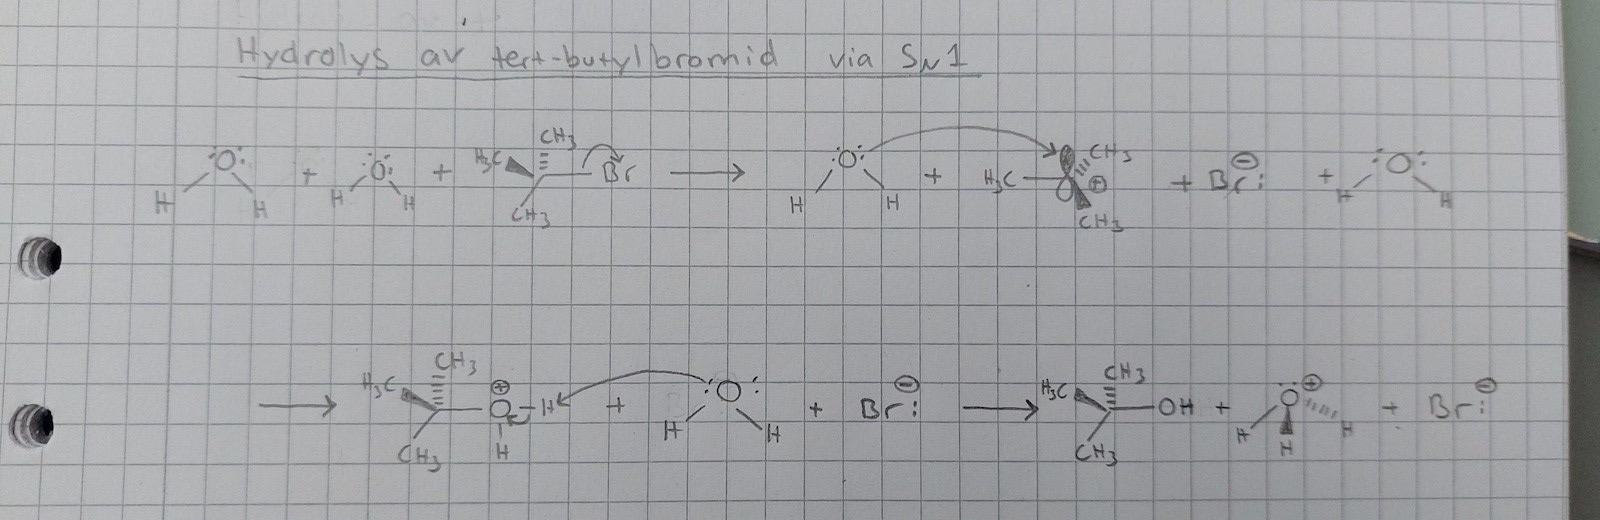 Hydrolys av tert-butylbromid via SN1
H :O: H + H :O: H + H3C CH3 CH3 Br → H :O: H + H3C CH3 ⊕ CH3 + Br:⊖ + H :O: H
→ H3C CH3 CH3 O⊕ H H + H :O: H + Br:⊖ → H3C CH3 CH3 OH + H Ö⊕ H H + Br:⊖